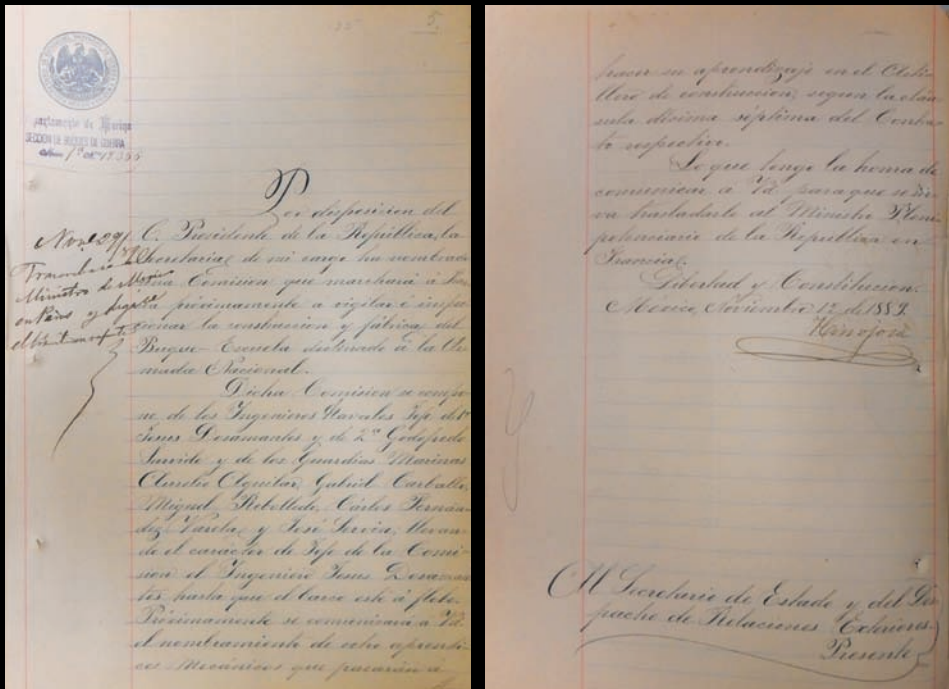 5.
Departamento de Marina
SECCION DE BUQUES DE GUERRA
Por disposicion del
C. Presidente de la República, la
Secretaría de mi cargo ha nombrado
una Comision que marchará á Fran
cia próximamente a vigilar é inspec
cionar la construccion y fábrica del
Buque-Escuela destinado á la Ar
mada Nacional.
Dicha Comision se compo
ne de los Ingenieros Navales Jefe de 1ª
Jesus Desamantes y de 2ª Godofredo
y de los Guardias Marinas
Aurelio Aguilar, Gabriel Carballo,
Miguel Rebolledo, Cárlos Fernán
dez Varela, y José Servin, llevan
do el carácter de Jefe de la Comi
sion el Ingeniero Jesus Desaman
tes, hasta que el barco esté á flote.
Próximamente se comunicará á Vd.
el nombramiento de ocho aprendi
ces Mecánicos que pasarán á
Nove 29/89
Transcríbase al
Ministro de Mexico
en Paris y dígase
hacer su aprendizaje en el Asti
llero de construccion, segun la cláu
sula décima séptima del Contra
to respectivo.
Lo que tengo la honra de
comunicar á Vd. para que se sir
va trasladarlo al Ministro Pleni
potenciario de la República en
Francia.
Libertad y Constitucion.
México, Noviembre 12 de 1889.
Hinojosa
Al Secretario de Estado y del Des
pacho de Relaciones Exteriores.
Presente